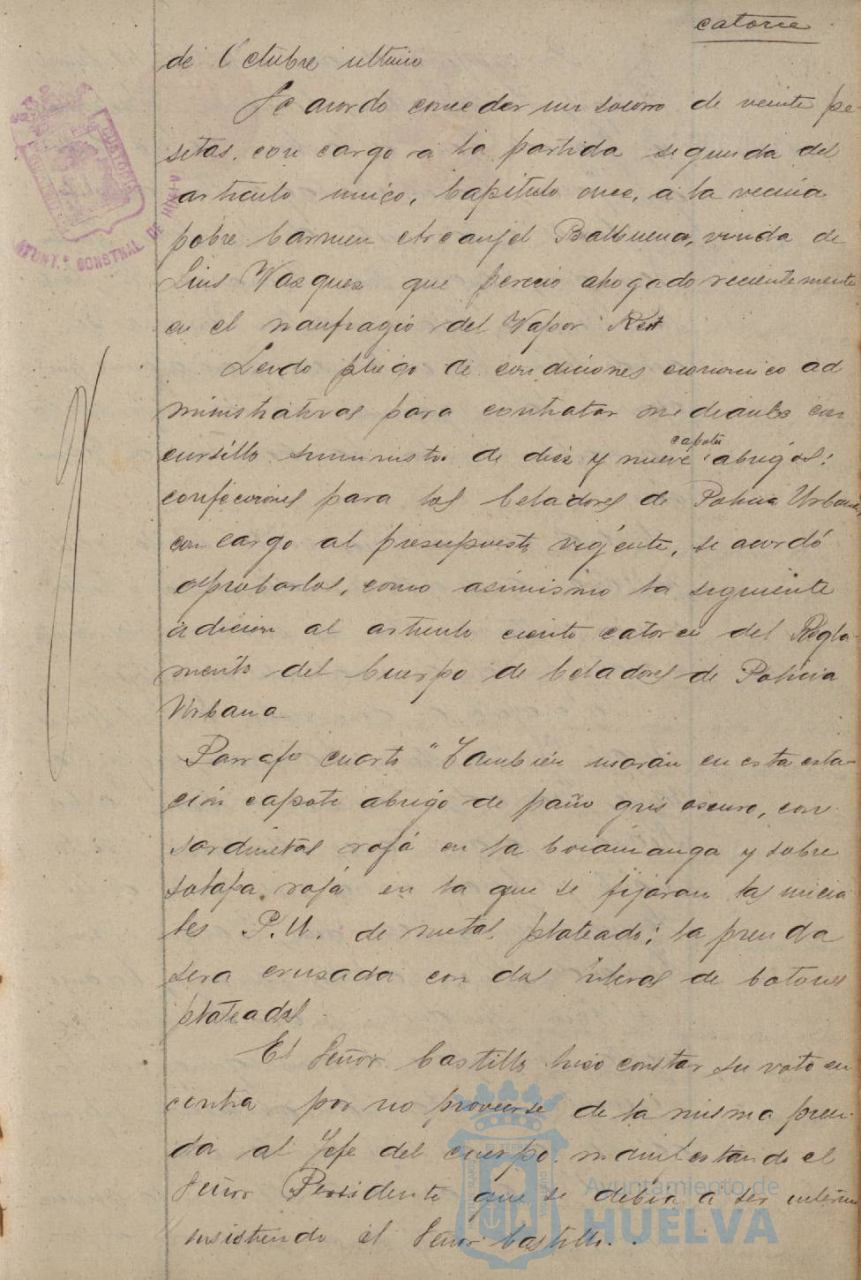 catorce
de Octubre ultimo
Se acordo conceder un socorro de veinte pe-
setas, con cargo a la partida segunda del
articulo unico, Capitulo once, a la vecina
pobre Carmen Arcangel Balbuena, viuda de
Luis Vazquez que perecio ahogado recientemente
en el naufragio del Vapor
Leido pliego de condiciones economico ad
ministrativas para contratar mediante con
cursillo suministro de diez y nueve capotes abrigos:
confecciones para los Celadores de Policia Urbana
con cargo al presupuesto vigente, se acordó
aprobarlos, como asimismo la siguiente
adicion al articulo ciento catorce del Regla-
mento del Cuerpo de Celadores de Policia
Urbana
Parrafo cuarto "Tambien usarán en esta esta-
ción capote abrigo de paño gris oscuro, con
sardinetas roja en la bocamanga y sobre
solapa roja en la que se fijaran las inicia
les P.U. de metal plateado; la prenda
sera cruzada con dos hileras de botones
plateados.
El Señor Castillo hizo constar su voto en
contra por no proveerse de la misma pren-
da al Jefe del cuerpo, manifestando el
Señor Presidente que se debia a ser interino
insistiendo el Señor Castillo.
AYUNT.º CONSTNAL DE HUELVA
Ayuntamiento de
HUELVA